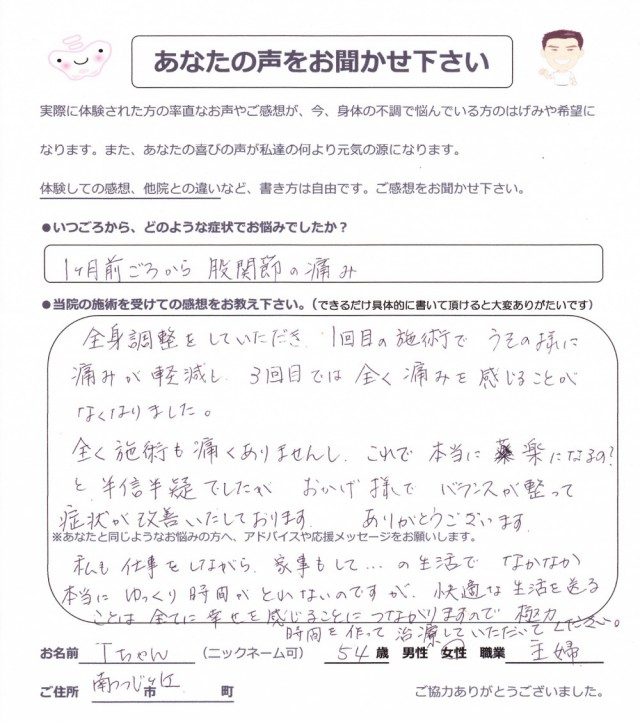 あなたの声をお聞かせ下さい
実際に体験された方の率直なお声やご感想が、今、身体の不調で悩んでいる方のはげみや希望に
なります。また、あなたの喜びの声が私達の何より元気の源になります。
体験しての感想、他院との違いなど、書き方は自由です。ご感想をお聞かせ下さい。
●いつごろから、どのような症状でお悩みでしたか？
1ヶ月前ごろから 股関節の痛み
●当院の施術を受けての感想をお教え下さい。（できるだけ具体的に書いて頂けると大変ありがたいです）
全身調整をしていただき、1回目の施術で うその様に
痛みが軽減し、3回目では全く痛みを感じることが
なくなりました。
全く施術も痛くありませんし、これで本当に 楽になるの?
と半信半疑でしたが おかげ様で バランスが整って
症状が改善いたしております。 ありがとうございます。
※あなたと同じようなお悩みの方へ、アドバイスや応援メッセージをお願いします。
私も仕事をしながら、家事もして…の生活で なかなか
本当にゆっくり時間がとれないのですが、快適な生活を送る
ことは全てに幸せを感じることにつながりますので 極力
時間を作って治療していただいてください。
お名前 Tちゃん （ニックネーム可） 54歳 男性 女性 職業 主婦
ご住所 南つつじヶ丘 市 町 ご協力ありがとうございました。